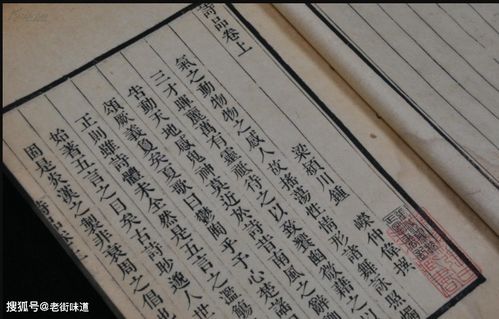 詩品卷上
梁潁川鍾 嶸仲偉撰
氣之動物物之感人故搖蕩性情形諸舞詠照燭
三才暉麗萬有靈祇待之以致饗幽微藉之
告動天地感鬼神莫近於詩昔南風之
頌厥義夐矣夏歌曰鬱陶乎予心楚謠
正則雖詩體未全然是五言之濫觴
始著五言之目矣古詩眇邈人世
固是炎漢之製非衰周之倡也
搜狐号@老街味道